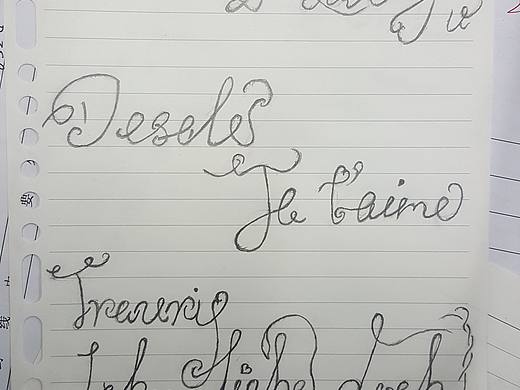 Desolé
Je t'aime
Traurig
Ich liebe dich